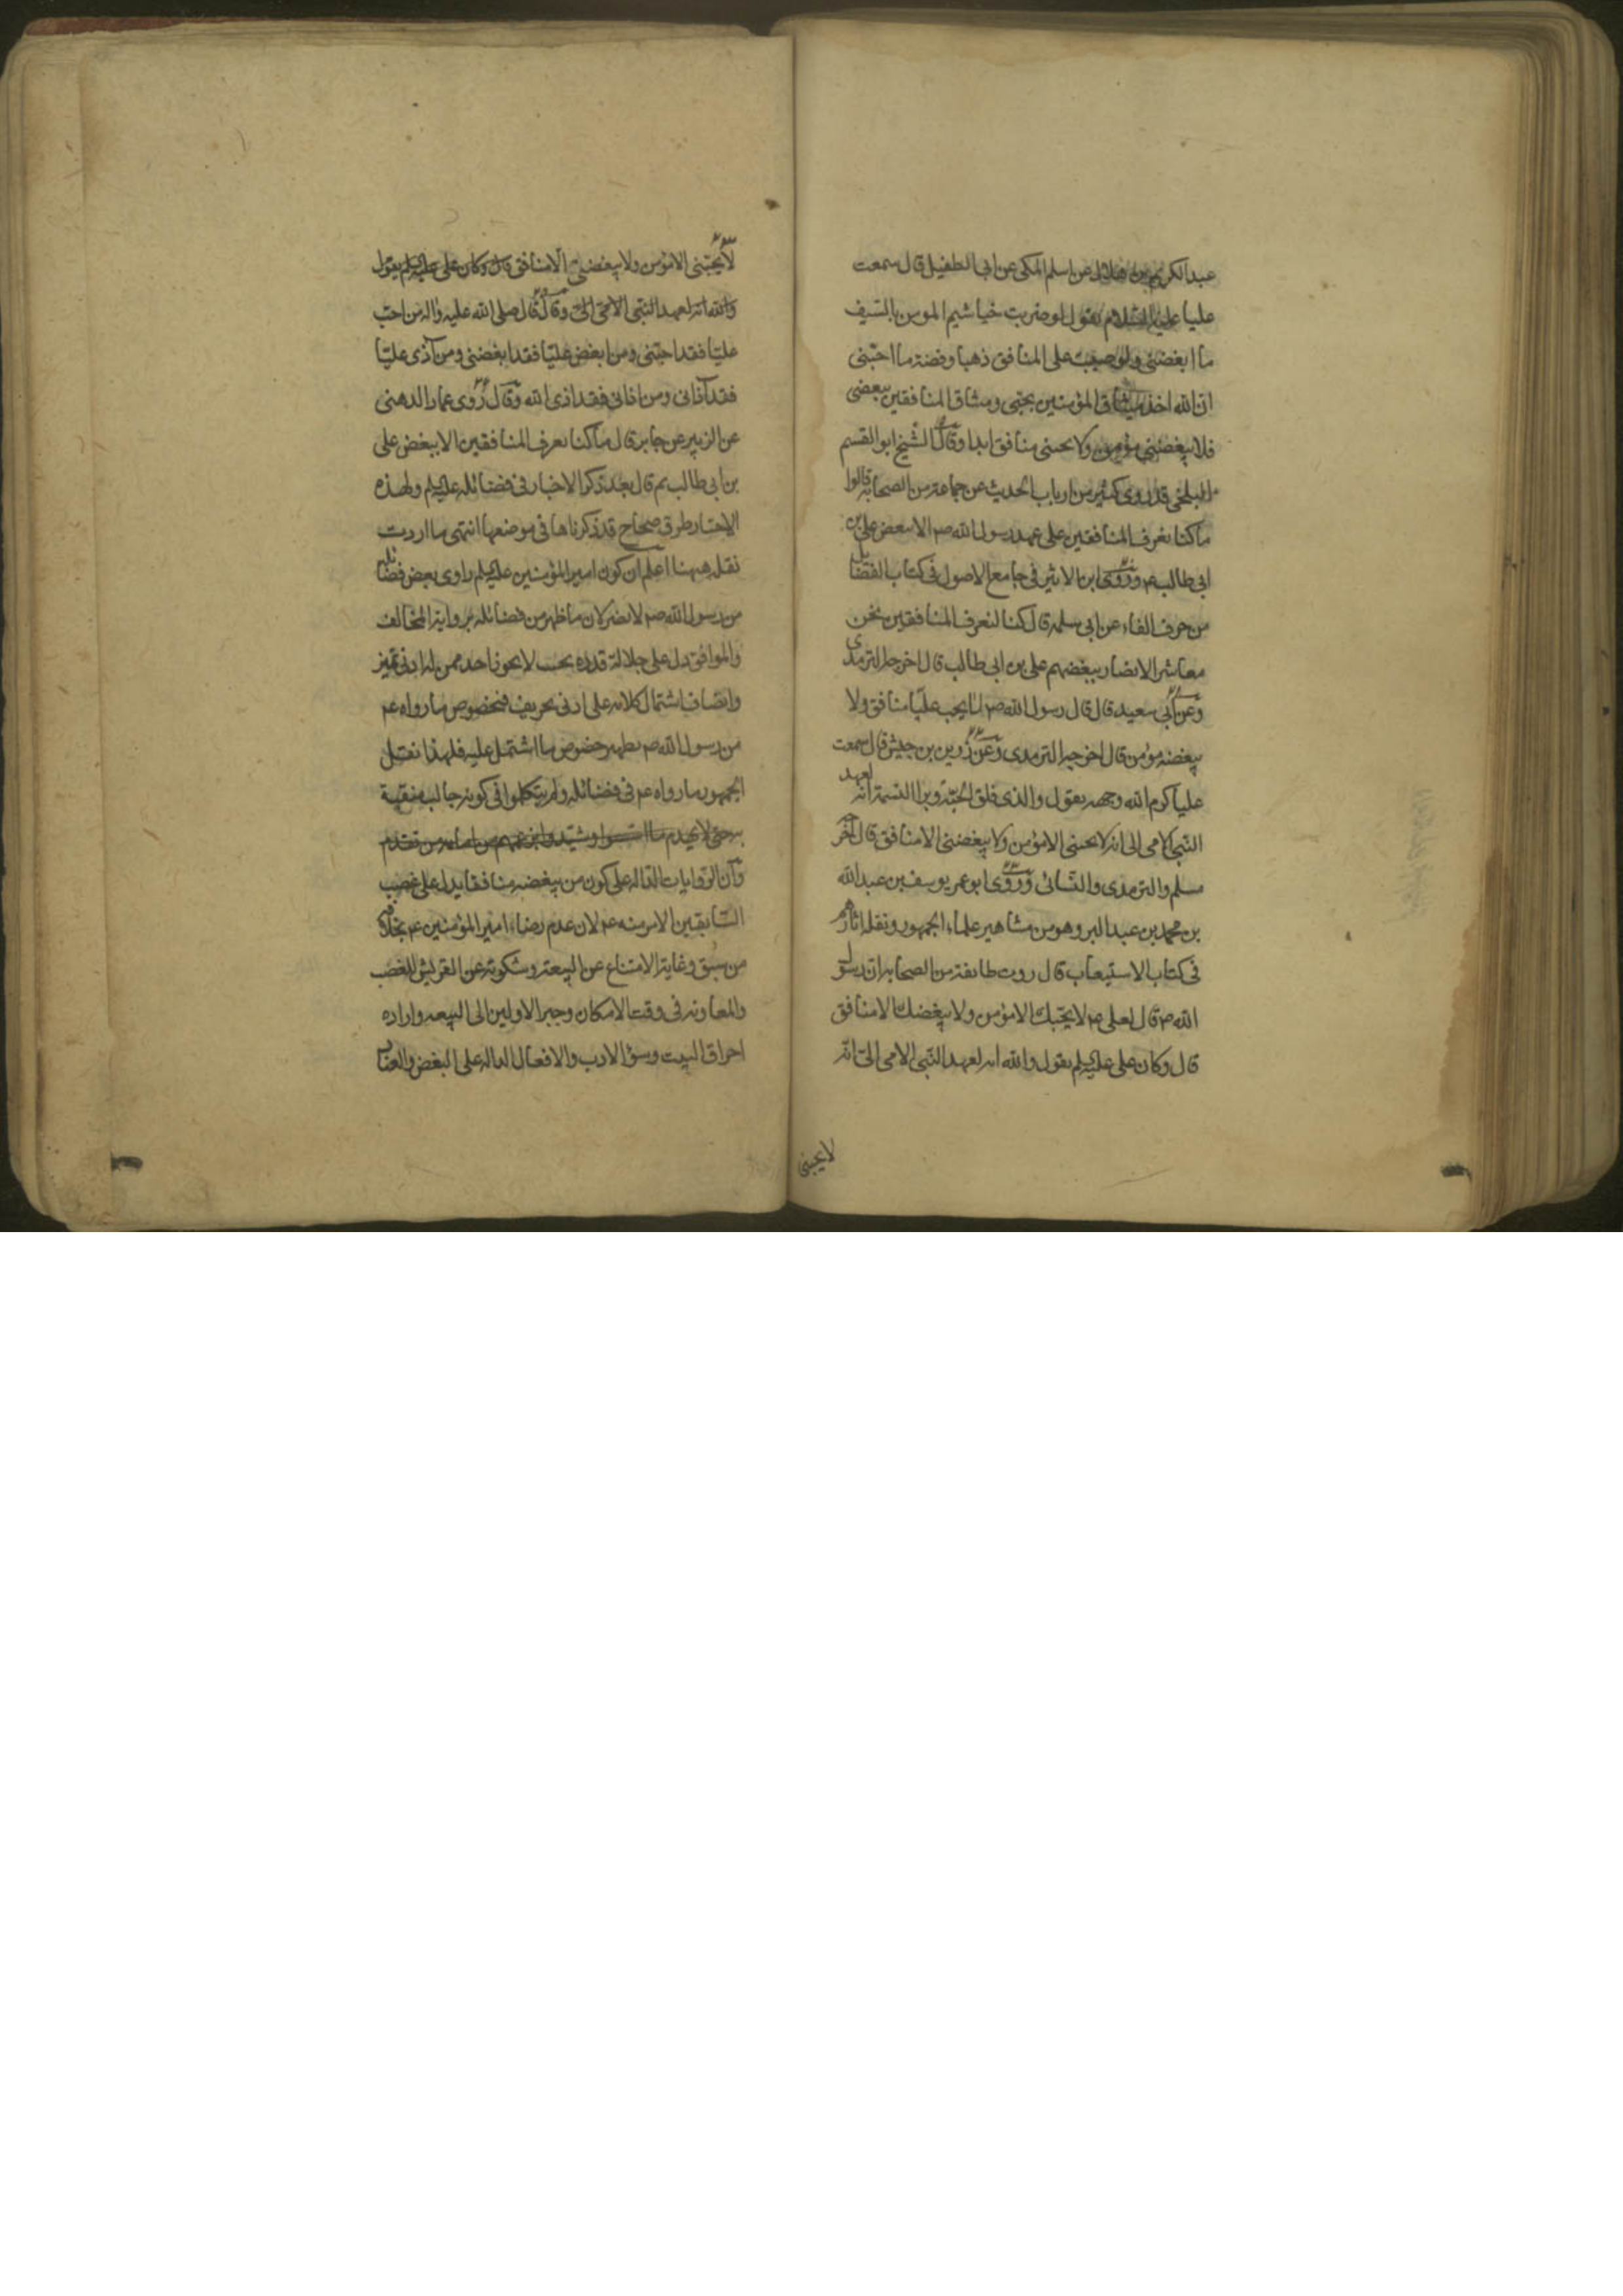 عبد الكريم بن هلال عن اسلم المكى عن ابى الطفيل قال سمعت
عليا عليه السلام يقول لو ضربت خياشيم المومن بالسيف
ما ابغضنى ولو صببت على المنافق ذهبا وفضة ما احبّنى
ان الله اخذ ميثاق المؤمنين بحبى وميثاق المنافقين ببغضى
فلا يبغضنى مؤمن ولا يحبنى منافق ابدا وقال الشيخ ابو القسم
البلخى قد روى كثير من ارباب الحديث عن جماعة من الصحابة قالوا
ما كنا نعرف المنافقين على عهد رسول الله صم الا ببغض على بن
ابى طالب عم وروى ابن الاثير فى جامع الاصول فى كتاب الفضايل
من حرف الفاء عن ابى سلمه قال كنا لنعرف المنافقين نحن
معاشر الانصار ببغضهم على بن ابى طالب قال اخرجه الترمدى
وعن ابى سعيد قال قال رسول الله صم لا يحب عليّا منافق ولا
يبغضه مؤمن قال اخرجه الترمدى وعن زوين بن جيش قال سمعت
عليا كرم الله وجهه يقول والذى فلق الحبّة وبرا النسمة انه لعهد
النبى الامى الى انه لا يحبنى الا مؤمن ولا يبغضنى الا منافق قال اخرجه
مسلم والترمدى والنسائى وروى ابو عمر يوسف بن عبد الله
بن محمد بن عبد البر وهو من مشاهير علماء الجمهور ونقله اثارهم
فى كتاب الاستيعاب قال روت طائفة من الصحابه ان رسول
الله صم قال لعلى عم لا يحبّك الا مؤمن ولا يبغضك الا منافق
قال وكان على عليه السلم يقول والله انه لعهد النبى الامى الىّ انّه
لا يحبنى
لا يحبّنى الا مؤمن ولا يبغضنى الا منافق قال وكان على عليه السلم يقول
والله انه لعهد النبى الامى الىّ وقال قال صلى الله عليه واله من احب
عليّا فقد احبّنى ومن ابغض عليّا فقد ابغضنى ومن آذى عليّا
فقد آذانى ومن اذانى فقد اذى الله وقال روى عمار الدهنى
عن الزبير عن جابر قال ما كنا نعرف المنافقين الا ببغض على
بن ابى طالب ثم قال بعد ذكر الاخبار فى فضائله عليه السلم ولهذه
الاخبار طرق صحاح قد ذكرناها فى موضعها انتهى ما اردت
نقله ههنا اعلم ان كون امير المؤمنين عليه السلم راوى بعض فضائله
من رسول الله صم لا يضر لان ما ظهر من فضائله برواية المخالف
والموافق دل على جلالة قدره بحيث لا يجوز احد ممن له ادنى تميز
وانصاف اشتمال كلامه على ادنى تحريف فخصوص ما رواه عم
من رسول الله صم يظهر خصوص ما اشتمل عليه فلهذا نقل
الجمهور ما رواه عم فى فضائله ولم يتكلموا فى كونه جالب منقبة
به حتى لا يهدم ما اسّسوا وشيّدوا بزعمهم من امامه من تقدم
وان الروايات الدّاله على كون من يبغضه منافقا يدل على غصب
السّابقين الامر منه عم لان عدم رضاء امير المؤمنين عم بخلافه
من سبق وغاية الامتناع عن البيعة وشكوته عن القريش للغصب
والمعاونه فى وقت الامكان وجبر الاولين الى البيعه واراده
احراق البيت وسؤ الادب والافعال الداله على البغض والعناد